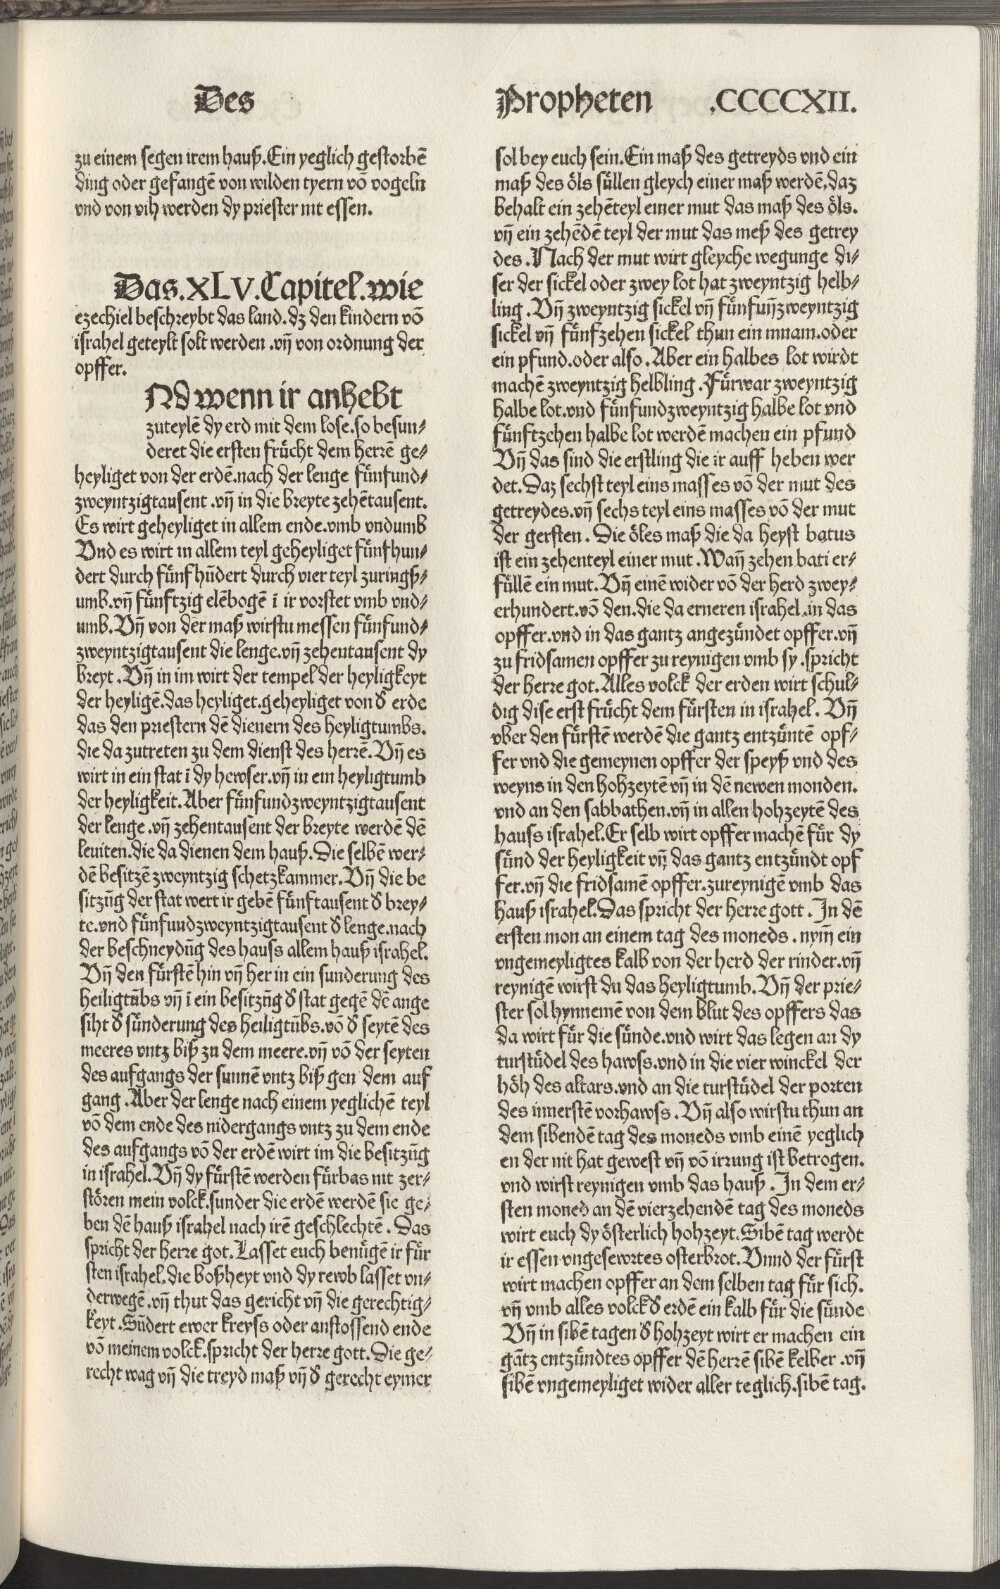 Des
Propheten .CCCCXII.
zu einem segen irem hauß. Ein yeglich gestorbē
ding oder gefangē von wilden tyern vō vogeln
vnd von vih werden dy priester nit essen.
Das .XLV. Capitel. wie
ezechiel beschreybt das land. dz den kindern vō
israhel geteylt solt werden .vn̄ von ordnung der
opffer.
ND wenn ir anhebt
zuteylē dy erd mit dem lose. so besun⸗
deret die ersten frücht dem herrē ge⸗
heyliget von der erdē. nach der lenge fünfund⸗
zweyntzigtausent .vn̄ in die breyte zehētausent.
Es wirt geheyliget in allem ende. vmb vndumb
Vnd es wirt in allem teyl geheyliget fünfhun⸗
dert durch fünf hūdert durch vier teyl zuringß⸗
umb. vn̄ fünftzig elēbogē ī ir vorstet vmb vnd⸗
umb. Vn̄ von der maß wirstu messen fünfund⸗
zweyntzigtausent die lenge. vn̄ zehentausent dy
breyt . Vn̄ in im wirt der tempel der heyligkeyt
der heyligē. das heyliget. geheyliget von d̄ erde
das den priestern dē dienern des heyligtumbs.
die da zutreten zu dem dienst des herrē. Vn̄ es
wirt in ein stat ī dy hewser. vn̄ in ein heyligtumb
der heyligkeit. Aber fünfundzweyntzigtausent
der lenge .vn̄ zehentausent der breyte werdē dē
leuiten. die da dienen dem hauß. Die selbē wer⸗
dē besitzē zweyntzig schetzkammer. Vn̄ die be
sitzūg der stat wert ir gebē fünftausent d̄ brey⸗
te. vnd fünfundzweyntzigtausent d̄ lenge. nach
der beschneydūg des hauss allem hauß israhel.
Vn̄ den fürstē hin vn̄ her in ein sunderung des
heiligtūbs vn̄ ī ein besitzūg d̄ stat gegē dē ange
siht d̄ sünderung des heiligtūbs. vō d̄ seytē des
meeres vntz biß zu dem meere. vn̄ vō der seyten
des aufgangs der sunnē vntz biß gen dem auf
gang . Aber der lenge nach einem yeglichē teyl
vō dem ende des nidergangs vntz zu dem ende
des aufgangs vō der erdē wirt im die besitzūg
in israhel. Vn̄ dy fürstē werden fürbas nit zer⸗
stören mein volck. sunder die erdē werdē sie ge⸗
ben dē hauß israhel nach irē geschlechtē . Das
spricht der herre got. Lasset euch benügē ir für
sten israhel. die boßheyt vnd dy rewb lasset vn⸗
derwegē. vn̄ thut das gericht vn̄ die gerechtig⸗
keyt . Sūdert ewer kreyss oder anstossend ende
vō meinem volck. spricht der herre gott. Die ge⸗
recht wag vn̄ die treyd maß vn̄ d̄ gerecht eymer
sol bey euch sein. Ein maß des getreyds vnd ein
maß des öls süllen gleych einer maß werdē. daz
behalt ein zehēteyl einer mut das maß des öls.
vn̄ ein zehēdē teyl der mut das meß des getrey
des . Nach der mut wirt gleyche wegunge di⸗
ser der sickel oder zwey lot hat zweyntzig helb⸗
ling . Vn̄ zweyntzig sickel vn̄ fünfun̄zweyntzig
sickel vn̄ fünfzehen sickel thun ein mnam. oder
ein pfund. oder also . Aber ein halbes lot wirdt
machē zweyntzig helbling . Fürwar zweyntzig
halbe lot. vnd fünfundzweyntzig halbe lot vnd
fünftzehen halbe lot werdē machen ein pfund
Vn̄ das sind die erstling die ir auff heben wer
det. Daz sechst teyl eins masses vō der mut des
getreydes. vn̄ sechs teyl eins masses vō der mut
der gersten . Die öles maß die da heyst batus
ist ein zehenteyl einer mut . Wan̄ zehen bati er⸗
füllē ein mut. Vn̄ einē wider vō der herd zwey⸗
erhundert. vō den. die da erneren israhel. in das
opffer. vnd in das gantz angezündet opffer. vn̄
zu fridsamen opffer zu reynigen vmb sy . spricht
der herre got. Alles volck der erden wirt schul⸗
dig dise erst frücht dem fürsten in israhel . Vn̄
vber den fürstē werdē die gantz entzüntē opf⸗
fer vnd die gemeynen opffer der speyß vnd des
weyns in den hohzeytē vn̄ in dē newen monden.
vnd an den sabbathen. vn̄ in allen hohzeytē des
hauss israhel. Er selb wirt opffer machē für dy
sünd der heyligkeit vn̄ das gantz entzündt opf
fer. vn̄ die fridsamē opffer. zureynigē vmb das
hauß israhel. Das spricht der herre gott . In dē
ersten mon an einem tag des moneds . nym̄ ein
vngemeyligtes kalb von der herd der rinder. vn̄
reynigē wirst du das heyligtumb. Vn̄ der prie⸗
ster sol hynnemē von dem blut des opffers das
da wirt für die sünde. vnd wirt das legen an dy
turstüdel des hawss. vnd in die vier winckel der
höh des altars. vnd an die turstüdel der porten
des innerstē vorhawss . Vn̄ also wirstu thun an
dem sibendē tag des moneds vmb einē yeglich
en der nit hat gewest vn̄ vō irrung ist betrogen.
vnd wirst reynigen vmb das hauß . In dem er⸗
sten moned an dē vierzehendē tag des moneds
wirt euch dy österlich hohzeyt. Sibē tag werdt
ir essen vngesewrtes osterbrot. Vnnd der fürst
wirt machen opffer an dem selben tag für sich.
vn̄ vmb alles volck d̄ erdē ein kalb für die sünde
Vn̄ in sibē tagen d̄ hohzeyt wirt er machen ein
gātz entzündtes opffer dē herrē sibē kelber .vn̄
sibē vngemeyliget wider aller teglich. sibē tag.